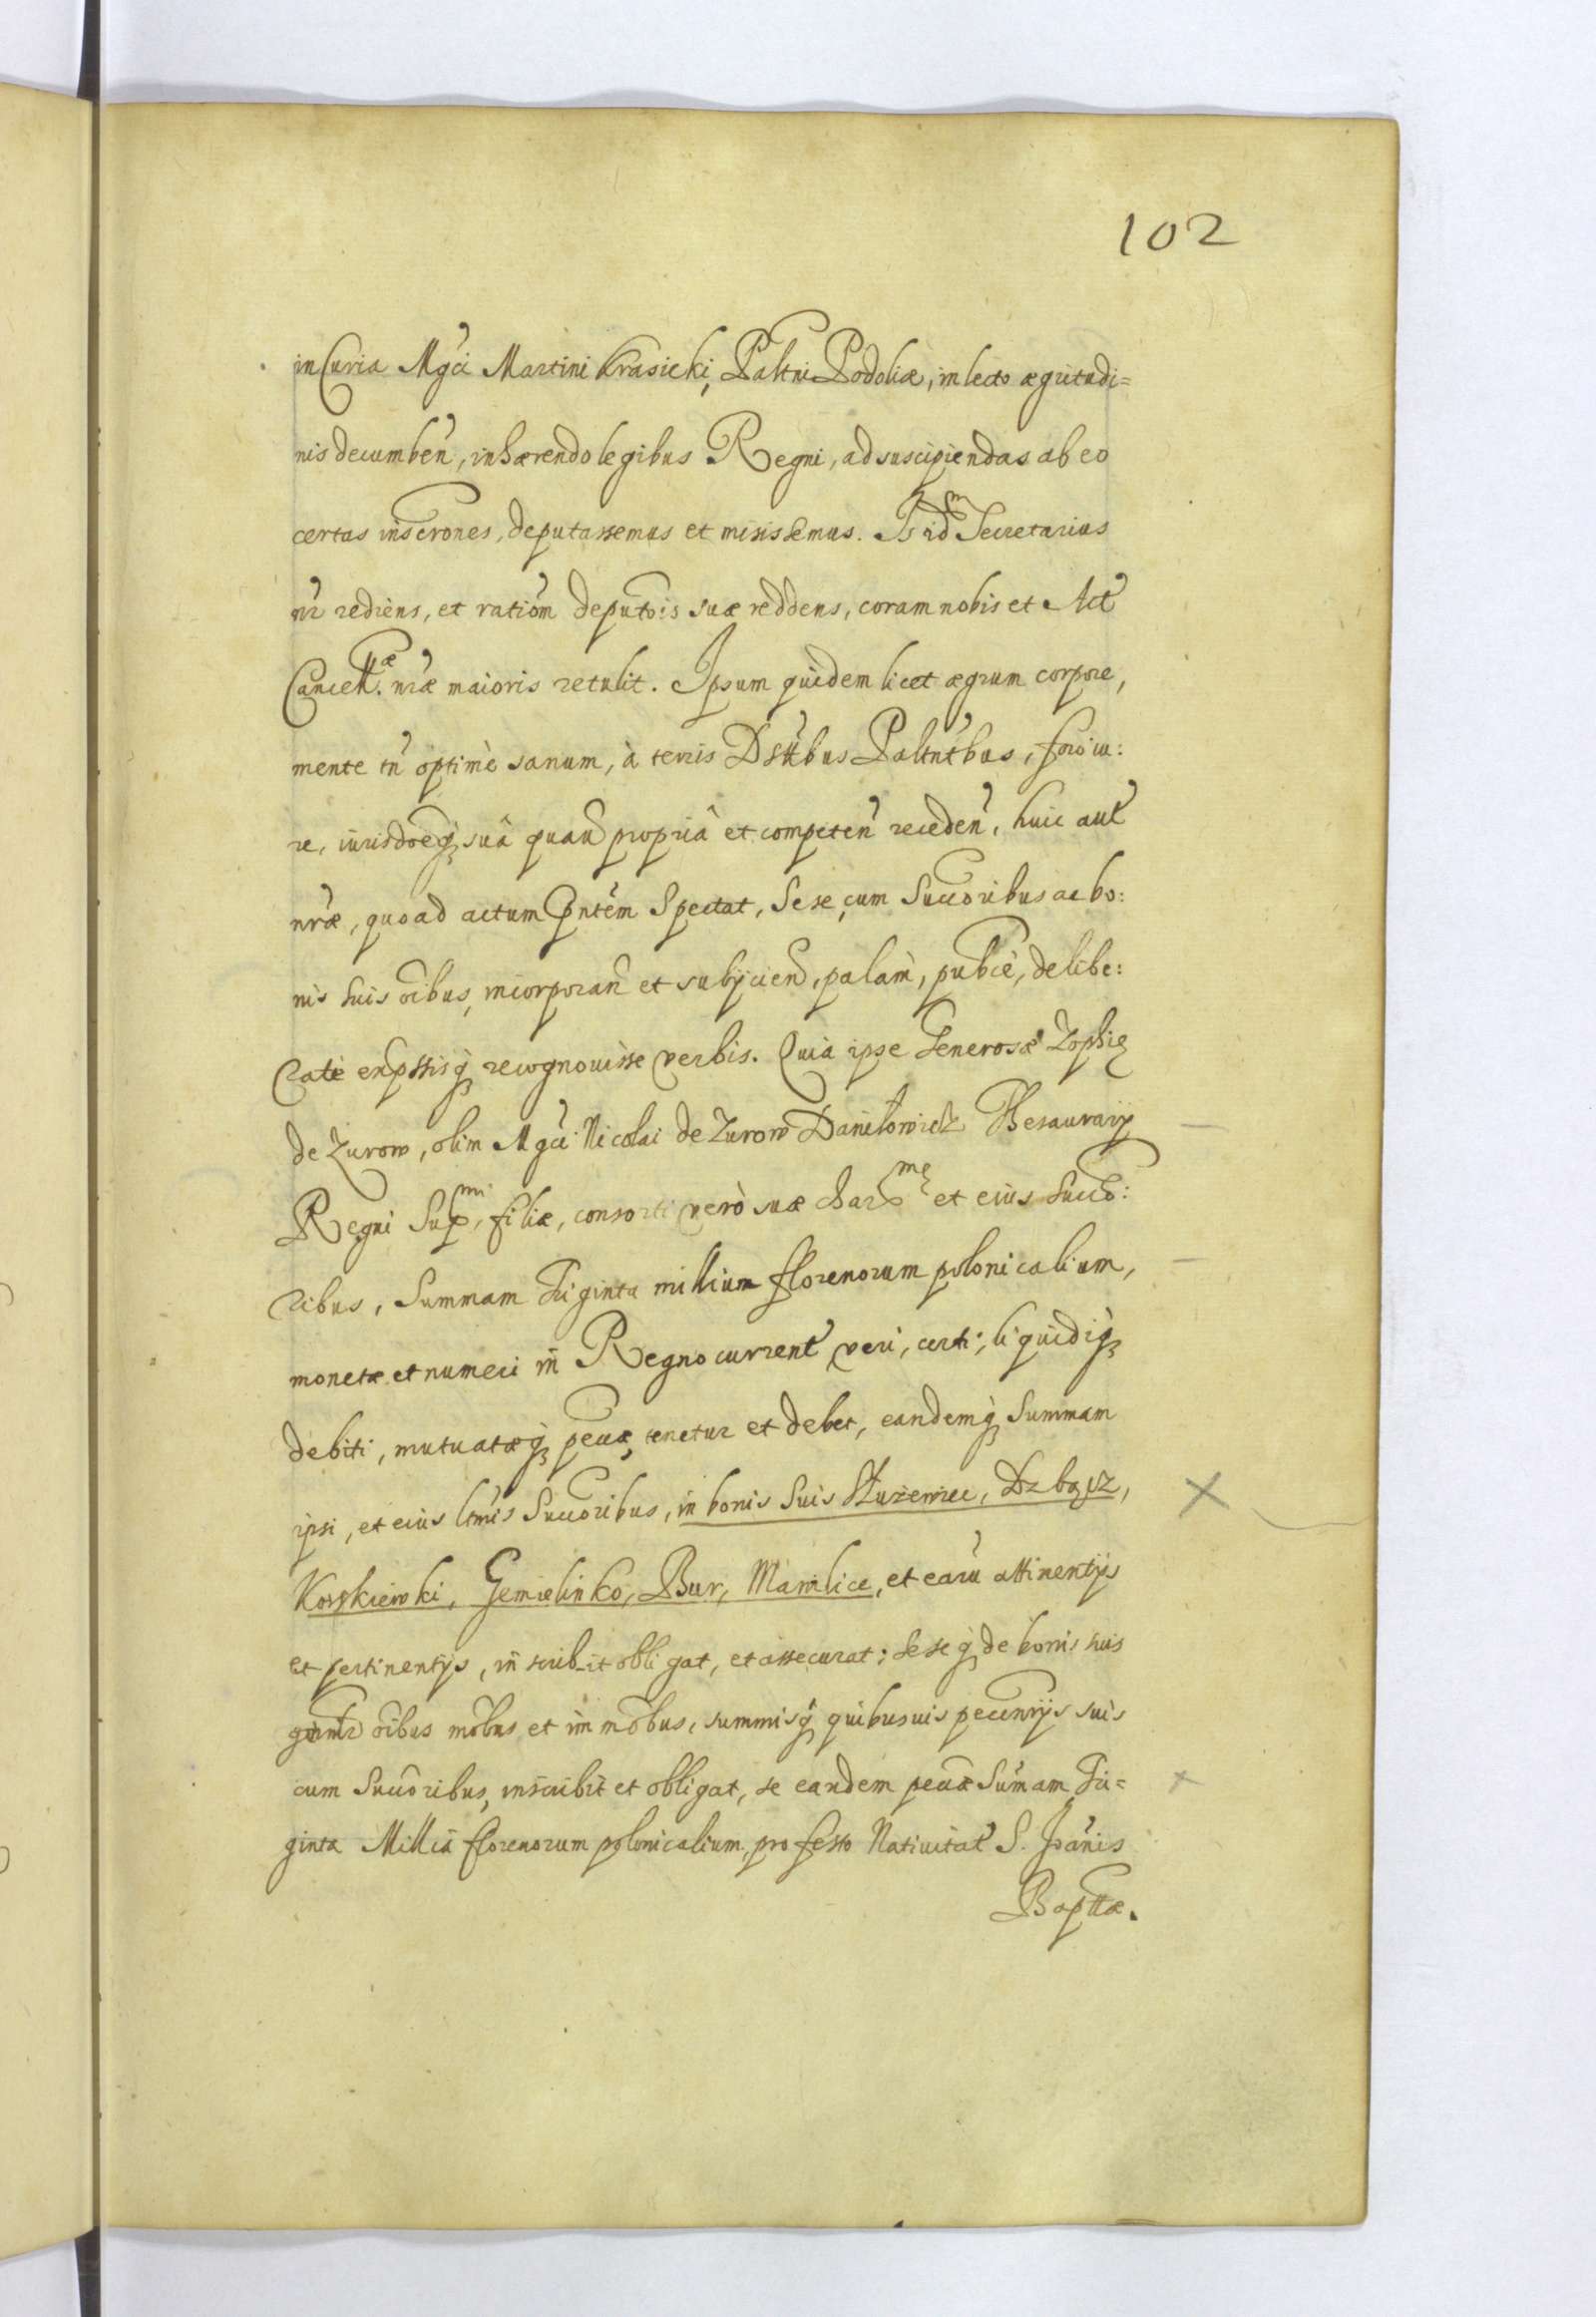 102
in Curia Mgci Martini Krasicki, Paltni Podoliæ, in lecto ægritudi=
nis decumben, inhærendo legibus Regni, ad suscipiendas ab eo
certas inscrones, deputassemus et misissemus. Is id Secretarius
nr rediens, et rationem deputois suæ reddens, coram nobis et Act
Cancell.æ nræ maioris retulit. Ipsum quidem licet ægrum corpore,
mente tn optimè sanum, à terris Dsttbus Paltntbus, foro iu:
re, iurisdoeq suâ quaũ propriâ et competen receden, huic aut
nræ, quoad actum pntem Spectat, Sese, cum Succoribus ac bo:
nis suis oibus, incorporan et subijcien, palam, publcè, delibe:
ratè expssisq recognouisse verbis. Quia ipse Generosæ Zophię
de Zurow, olim Mgci Nicolai de Zurow Daniłowicz Thesaurarij
Regni Sup.mi filiæ, consorti verò suæ char.mę et eius Succo:
ribus, Summam Triginta millium florenorum polonicalium,
monetæ et numeri in Regno current veri, certi, liquidiq
debiti, mutuatæq pecuæ, tenetur et debet, eandemq Summam
ipsi, et eius ltmis Succoribus, in bonis Suis Służewiec,
Gemielinko, Bur, Mamlice, et earũ attinentijs
et pertinentijs, inscribit obligat, et assecurat; Sese q de bonis suis
gnntr oibus mobus et immobus, summisq quibusuis pecunijs suis
cum Succoribus, inscribit et obligat, se eandem pecuæ Sumam Tri=
ginta Millia florenorum polonicalium, pro festo Natiuitat S. Joanis
Bapttæ.